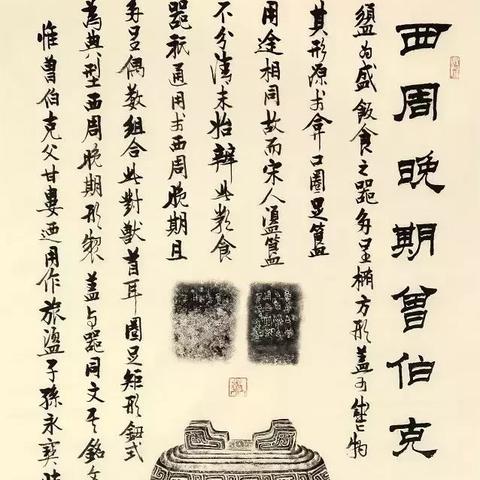 西周晚期曾伯克
盨为盛飯食之器多呈橢方形蓋可
其形源于弇口圈足簋
用途相同故而宋人盨簋
不分清末始辨此类食
器衹通用于西周晚期且
多呈偶数组合此對獸首耳圈足矩形鈕式
為典型西周晚期形製蓋与器同文
惟曾伯克父甘婁迺用作旅盨子孫永寶